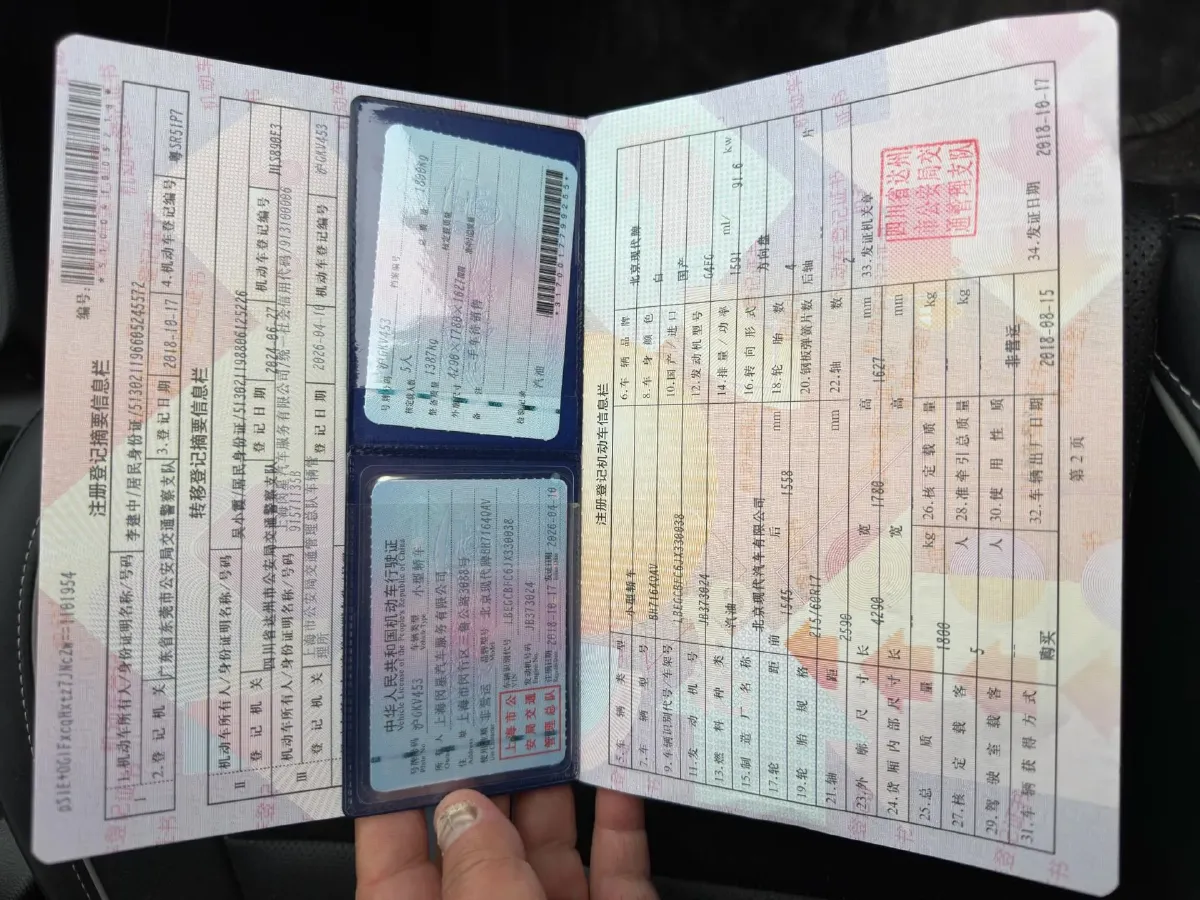 注册登记摘要信息栏
编号:
1.机动车所有人/身份证明名称/号码 李建中/居民身份证/513021196605245572
2.登记机关 广东省东莞市公安局交通警察支队 3.登记日期 2018-10-17 4.机动车登记编号 粤SR51P7
转移登记摘要信息栏
Ⅱ 机动车所有人/身份证明名称/号码 吴小霞/居民身份证/513021198806125226
登记机关 四川省达州市公安局交通警察支队 登记日期 2024-06-27 机动车登记编号 川S898F3
Ⅲ 机动车所有人/身份证明名称/号码 上海闵星汽车服务有限公司/统一社会信用代码/913100006
91571135B
登记机关 上海市公安局交通管理总队车辆管
理所 登记日期 2026-04-10 机动车登记编号 沪GKV453
中华人民共和国机动车行驶证
Vehicle License of the People's Republic of China
号牌号码 沪GKV453 车辆类型 小型轿车
Plate No. Vehicle Type
所有人 上海闵星汽车服务有限公司
Owner
住址 上海市闵行区三鲁公路3088号
Address
使用性质 非营运 品牌型号 北京现代牌BH7164QAV
Model
车辆识别代号 LBEGCBFC6JX330038
发动机号码 JB373024
Engine No.
注册日期 2018-10-17 发证日期 2026-04-10
上海市公
安局交通
管理总队
号牌号码 沪GKV453 档案编号
核定载人数 5人 总质量 1800kg
整备质量 1387kg 核定载质量
外廓尺寸 4290×1780×1627mm 准牵引总质量
备注 二手车待销售
检验记录 汽油
*3170017799255*
注册登记机动车信息栏
5.车辆类型 小型轿车 6.车辆品牌 北京现代牌
7.车辆型号 BH7164QAV 8.车身颜色 白
9.车辆识别代号/车架号 LBEGCBFC6JX330038 10.国产/进口 国产
11.发动机号 JB373024 12.发动机型号 G4FG
13.燃料种类 汽油 14.排量/功率 1591 ml/ 91.6 kw
15.制造厂名称 北京现代汽车有限公司 16.转向形式 方向盘
17.轮距 前 1545 后 1558 mm 18.轮胎数 4
19.轮胎规格 215/60R17 20.钢板弹簧片数 后轴 -- 片
21.轴距 2590 mm 22.轴数 2
23.外廓尺寸 长 4290 宽 1780 高 1627 mm 33.发证机关章
24.货厢内部尺寸 长 宽 高 mm
25.总质量 1800 kg 26.核定载质量 kg
27.核定载客 5 人 28.准牵引总质量 kg
29.驾驶室载客 -- 人 30.使用性质 非营运
31.车辆获得方式 购买 32.车辆出厂日期 2018-08-15 34.发证日期 2018-10-17
四川省达州
市公安局交
通警察支队
第 2 页